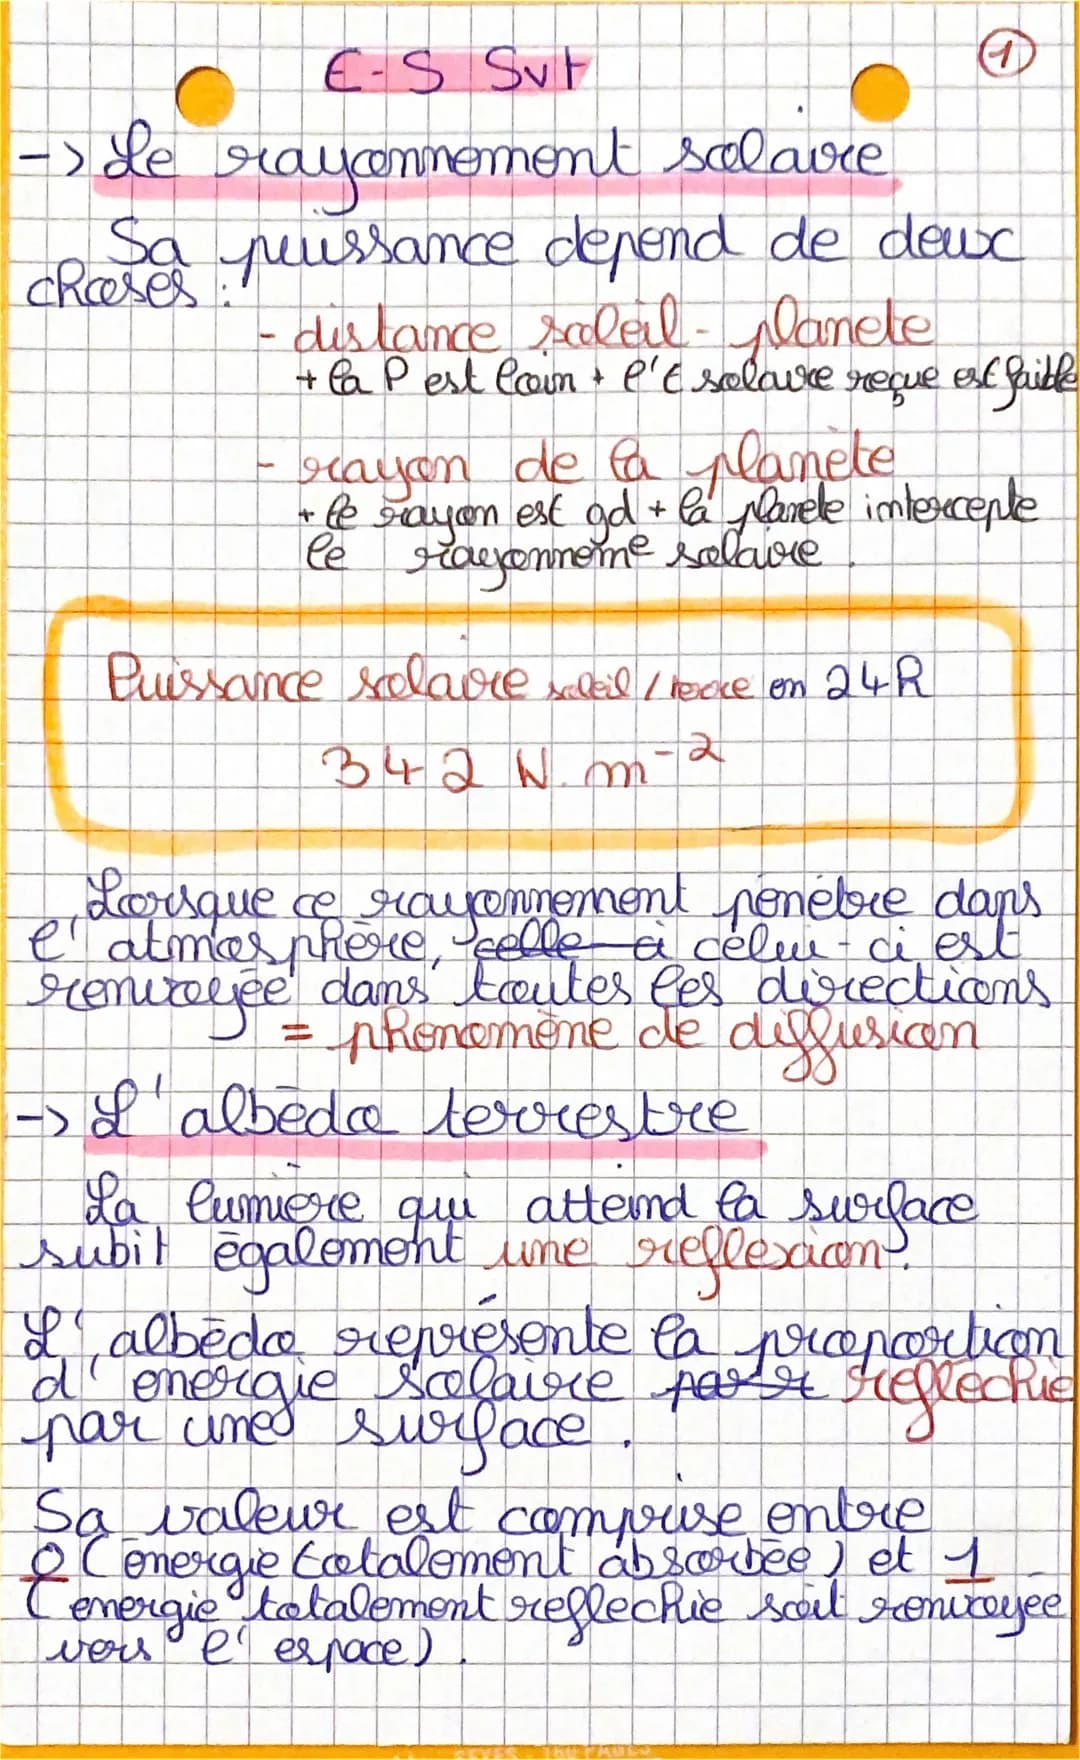 E-S Svt
1
-> Le rayonnement solaire
Sa puissance depend de deux
choses :
- distance soleil - planete
+ la P est loin + l'E solaire reçue est faible
- rayon de la planète
+ le rayon est gd + la planete intercepte
le rayonneme solaire.
Puissance solaire soleil / terre en 24h
342 W.m-2
Lorsque ce rayonnement pénètre dans
l'atmosphère, celle ci celui-ci est
renvoyée dans toutes les directions
= phénomène de diffusion
-> L'albédo terrestre
La lumière qui atteind la surface
subit également une reflexion.
L'albédo représente la proportion
d'énergie solaire reflechie
par une surface.
Sa valeur est comprise entre
0 (énergie totalement absorbée) et 1
(énergie totalement reflechie soit renvoyée
vers l'espace).